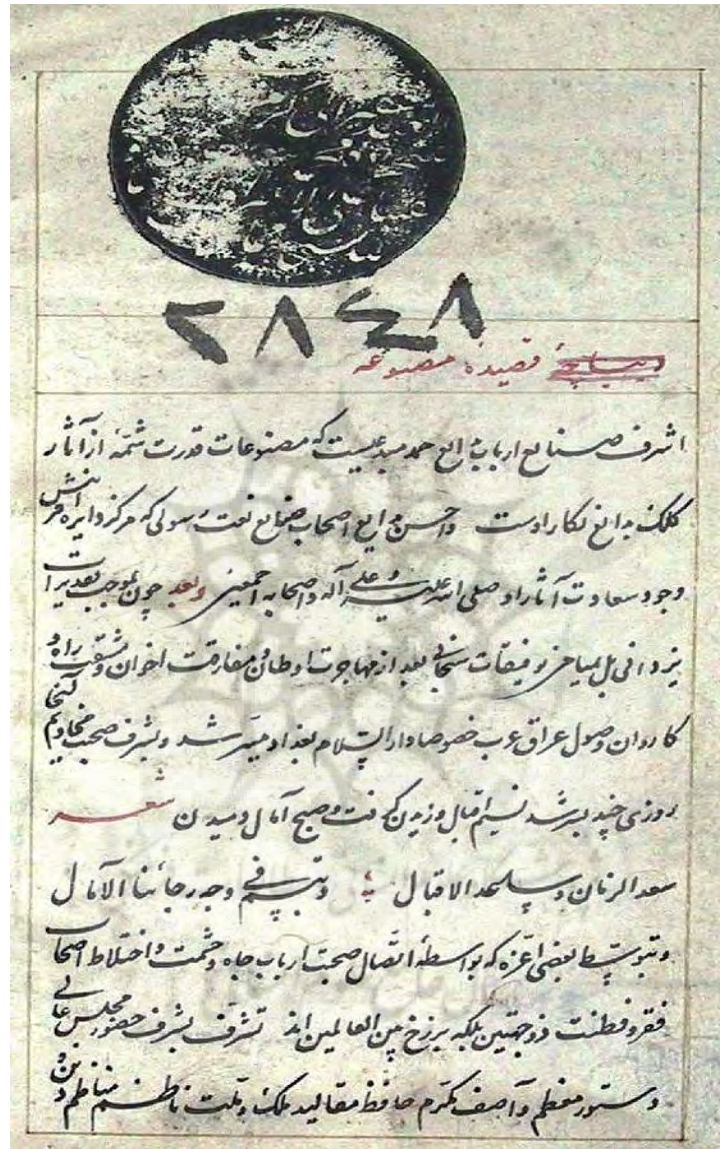 ۲۸۴۸
دیباچهٔ قصیدهٔ مصنوعه
اشرف صنایع ارباب بدایع حمد مبدعیست که مصنوعات قدرت شمهٔ از آثار
کلک بدایع نگار اوست واحسن بدایع اصحاب صنایع نعت رسولی که مرکز دایره آفرینش
وجود سعادت آثار اوصلی الله علیه و علی آله واصحابه اجمعین وبعد چون بموجب تقدیرات
یزدانی بل بمیامن توفیقات سبحانی بعد از مهاجرت اوطان و مفارقت اخوان ومشقت راه و
کاروان وصول عراق عرب خصوصا دارالسلام بغداد میسر شد وبشرف صحبت مخادیم
روزی چند بر شد نسیم اقبال وزیدن گرفت وصبح آمال دمیدن شعر
سعد الزمان و ساعد الاقبال وتبسم فی وجه رجائنا الآمال
وبتوسط بعضی اعزه که بواسطهٔ اتصال صحبت ارباب جاه وحشمت واختلاط اصحاب
فقر و فطنت ذوجهتین بلکه برزخ بین العالمین اند تشرف بشرف حضور مجلس عالی
دستور معظم وآصف مکرم حافظ مقالید ملک وملت ناظم مناظم دین و